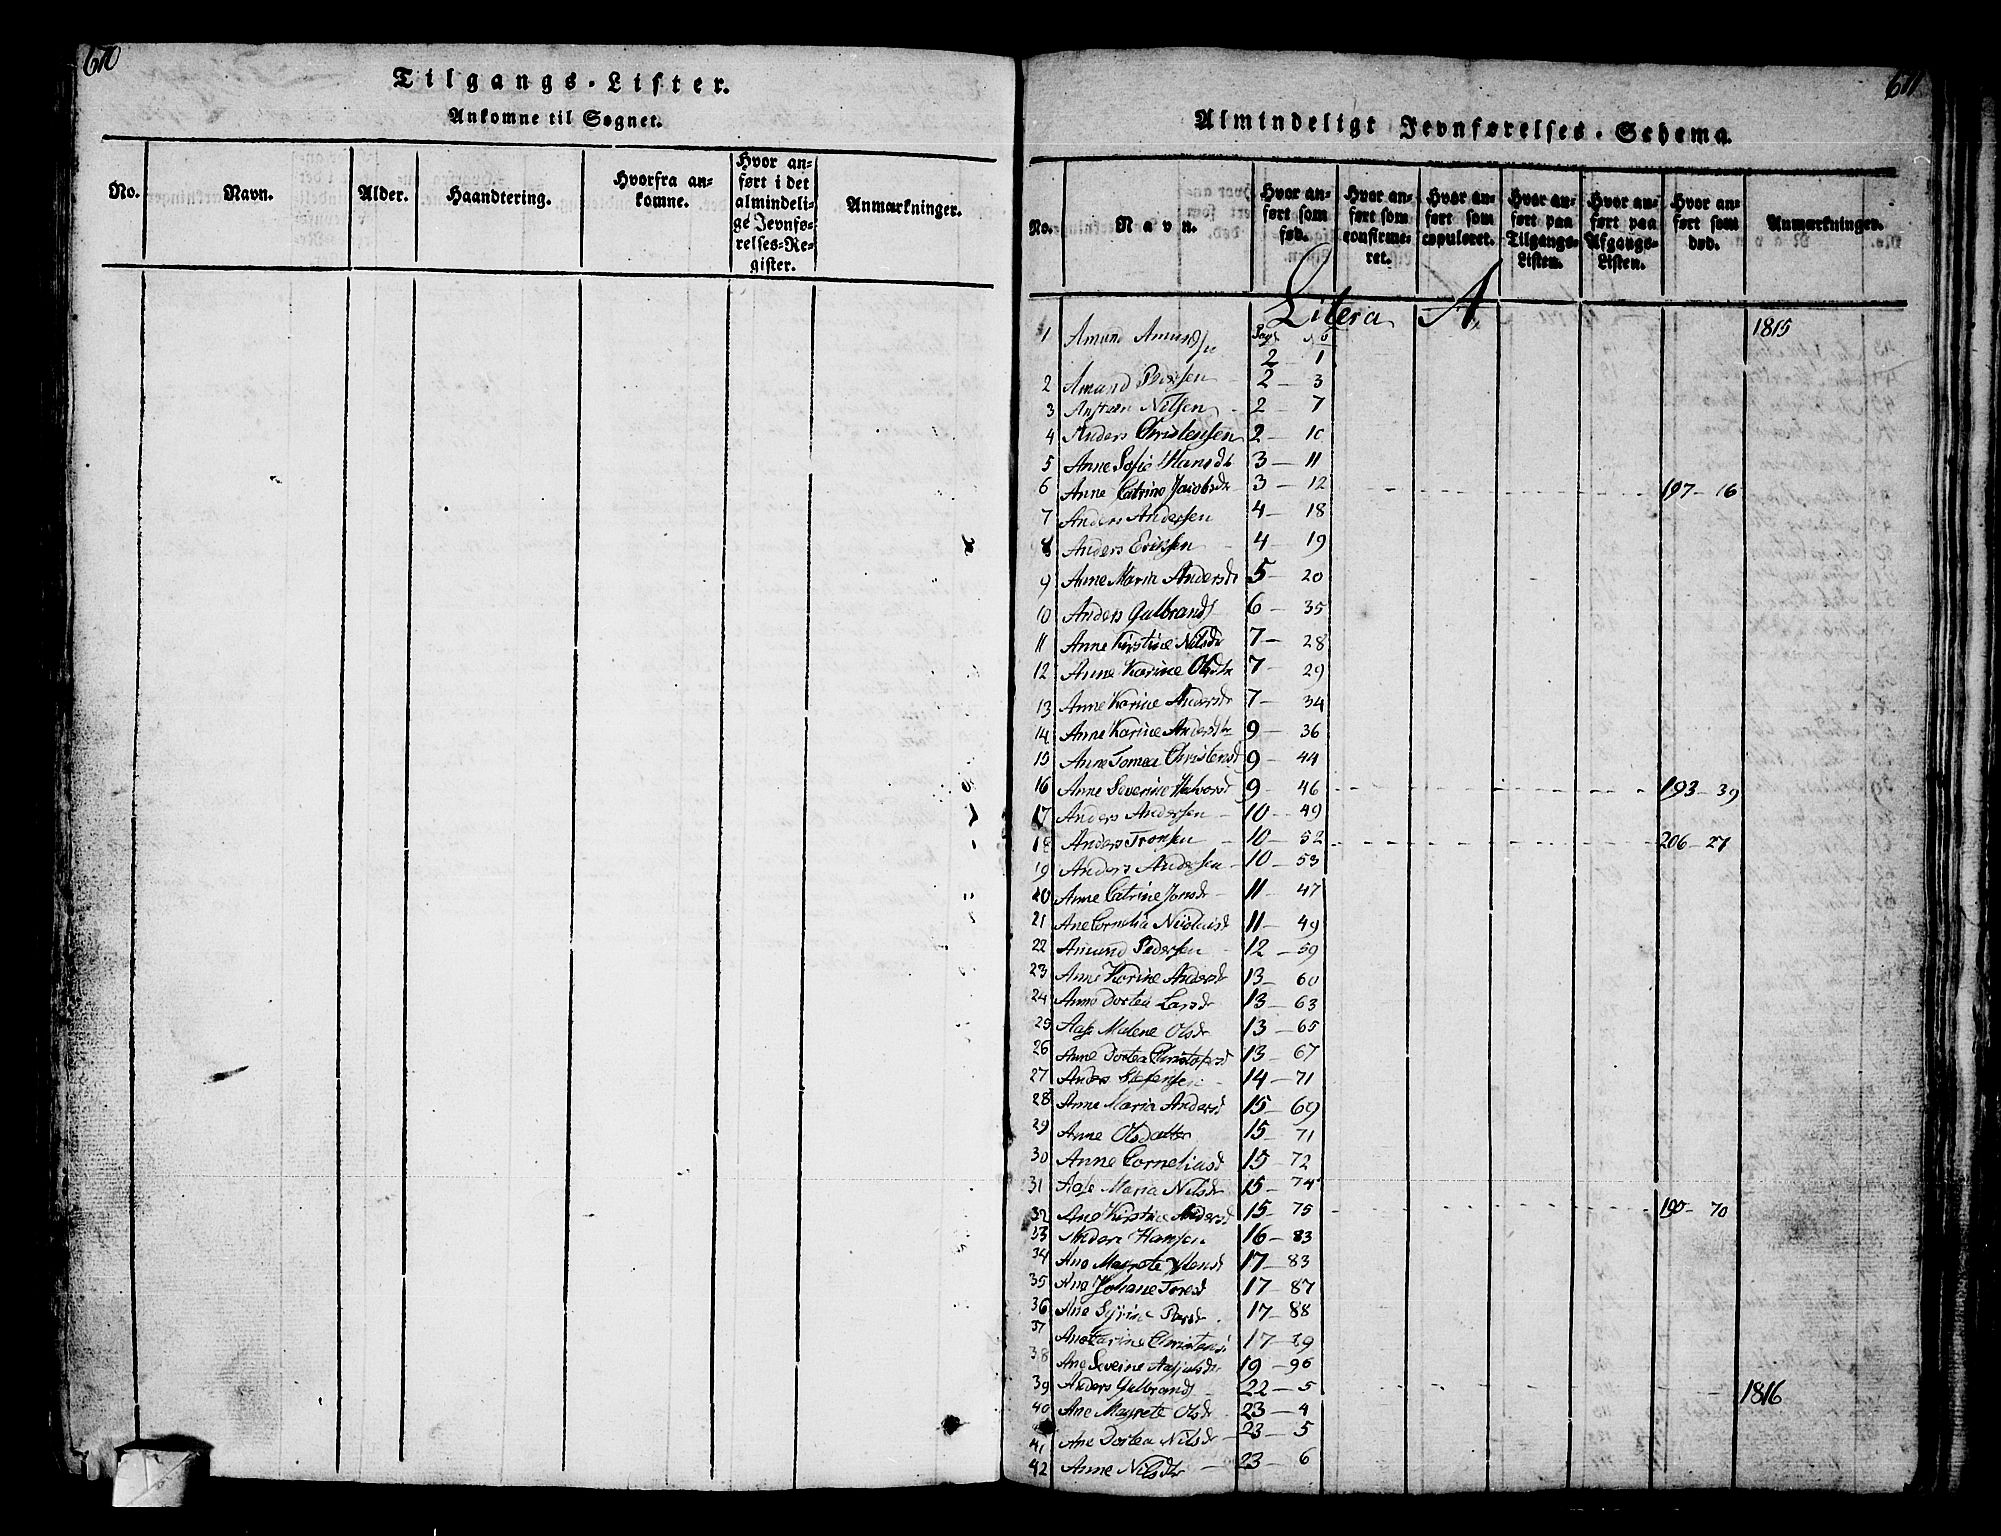 670
Tilgangs-Lister.
Ankomne til Sognet.
No.
Navn.
Alder.
Haandtering.
Hvorfra an-
komne.
Hvor an-
ført i det
almindeli-
ge Jevnfø-
relses-Re-
gister.
Anmærkninger.
671
Almindeligt Jevnførelses-Schema.
No.
Navn.
Hvor an-
ført som
fød.
Hvor an-
ført som
confirme-
ret.
Hvor an-
ført som
copuleret.
Hvor an-
ført paa
Tilgangs-
Listen.
Hvor an-
ført paa
Afgangs-
Listen.
Hvor an-
ført som
død.
Anmærkninger.
Litera A
1 Amund Amunds 2 1 1815
2 Amund 2 3
3 Nilsen 2 7
4 Anders Christensen 2 10
5 Anne Sofie Hansdt 3 11
6 Anne Catrine Jacobsdt 3 12 197 16
7 Anders Andersen 4 18
8 Anders Eriksen 4 19
9 Anne Maria Andersdt 5 20
10 Anders Gulbrands 6 35
11 Anne Kirstine Nilsdt 7 28
12 Anne Karine Olsdtr 7 29
13 Anne Karine Andersdt 7 34
14 Anne Karine Andersdtr 9 36
15 Anne Tomea Christensd 9 44
16 Anne Severine Halvorsd 9 46 193 39
17 Anders Andersen 10 49
18 Anders Tronsen 10 52 206 27
19 Anders Andersen 10 53
20 Anne Catrine Jonsdr 11 47
21 Ane Cornelia Nicolaisd 11 49
22 Amund Pedersen 12 59
23 Anne Karine Andersdt 13 60
24 Anne Dortea Larsdr 13 63
25 Aase Malene Olsdr 13 65
26 Anne Dortea Christofersd 13 67
27 Anders Stefensen 14 71
28 Anne Maria Andersd 15 69
29 Anne Olsdatter 15 71
30 Anne Corneliusd 15 72
31 Aase Maria Nilsdr 15 74
32 Ane Kirstine Andersd 15 75 190 70
33 Anders Hansen 16 83
34 Ane Magrete 17 83
35 Ane Johane Toresd 17 87
36 Ane Syrine Persdr 17 88
37 Ane Karine Christensd 17 89
38 Ane Severine 19 96
39 Anders Gulbrands 22 5 1816
40 Ane Magrete Olsdr 23 4
41 Ane Dortea Nilsdr 23 5
42 Anne Nilsdtr 23 6